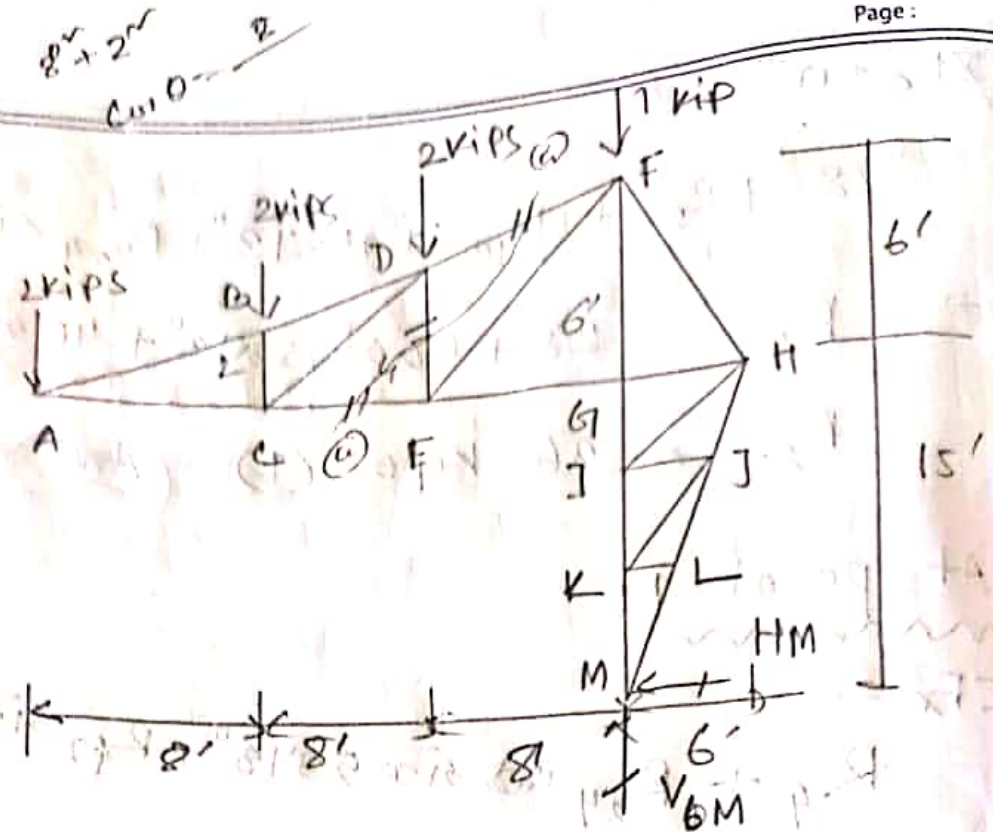 Page:
8² + 2²
1 kip
2kips
F
2kips
D
6'
2kips
B
2'
6'
4'
H
G
A
C
E
J
15'
K
L
HM
M
8'
8'
8'
6'
VM